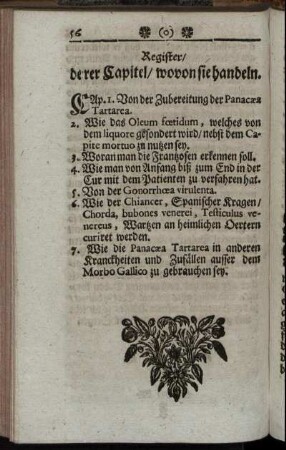 56 (o)
Register/
derer Capitel/ wovon sie handeln.
CAp. 1. Von der Zubereitung der Panacæa
Tartarea.
2. Wie das Oleum fœtidum, welches von
dem liquore gesondert wird/ nebst dem Ca-
pite mortuo zu nutzen sey.
3. Woran man die Frantzosen erkennen soll.
4. Wie man von Anfang biß zum End in der
Cur mit dem Patienten zu verfahren hat.
5. Von der Gonorrhœa virulenta.
6. Wie der Chiancer, Spanischer Kragen/
Chorda, bubones venerei, Testiculus ve-
nereus, Wartzen an heimlichen Oertern
curiret werden.
7. Wie die Panacæa Tartarea in anderen
Kranckheiten und Zufällen ausser dem
Morbo Gallico zu gebrauchen sey.